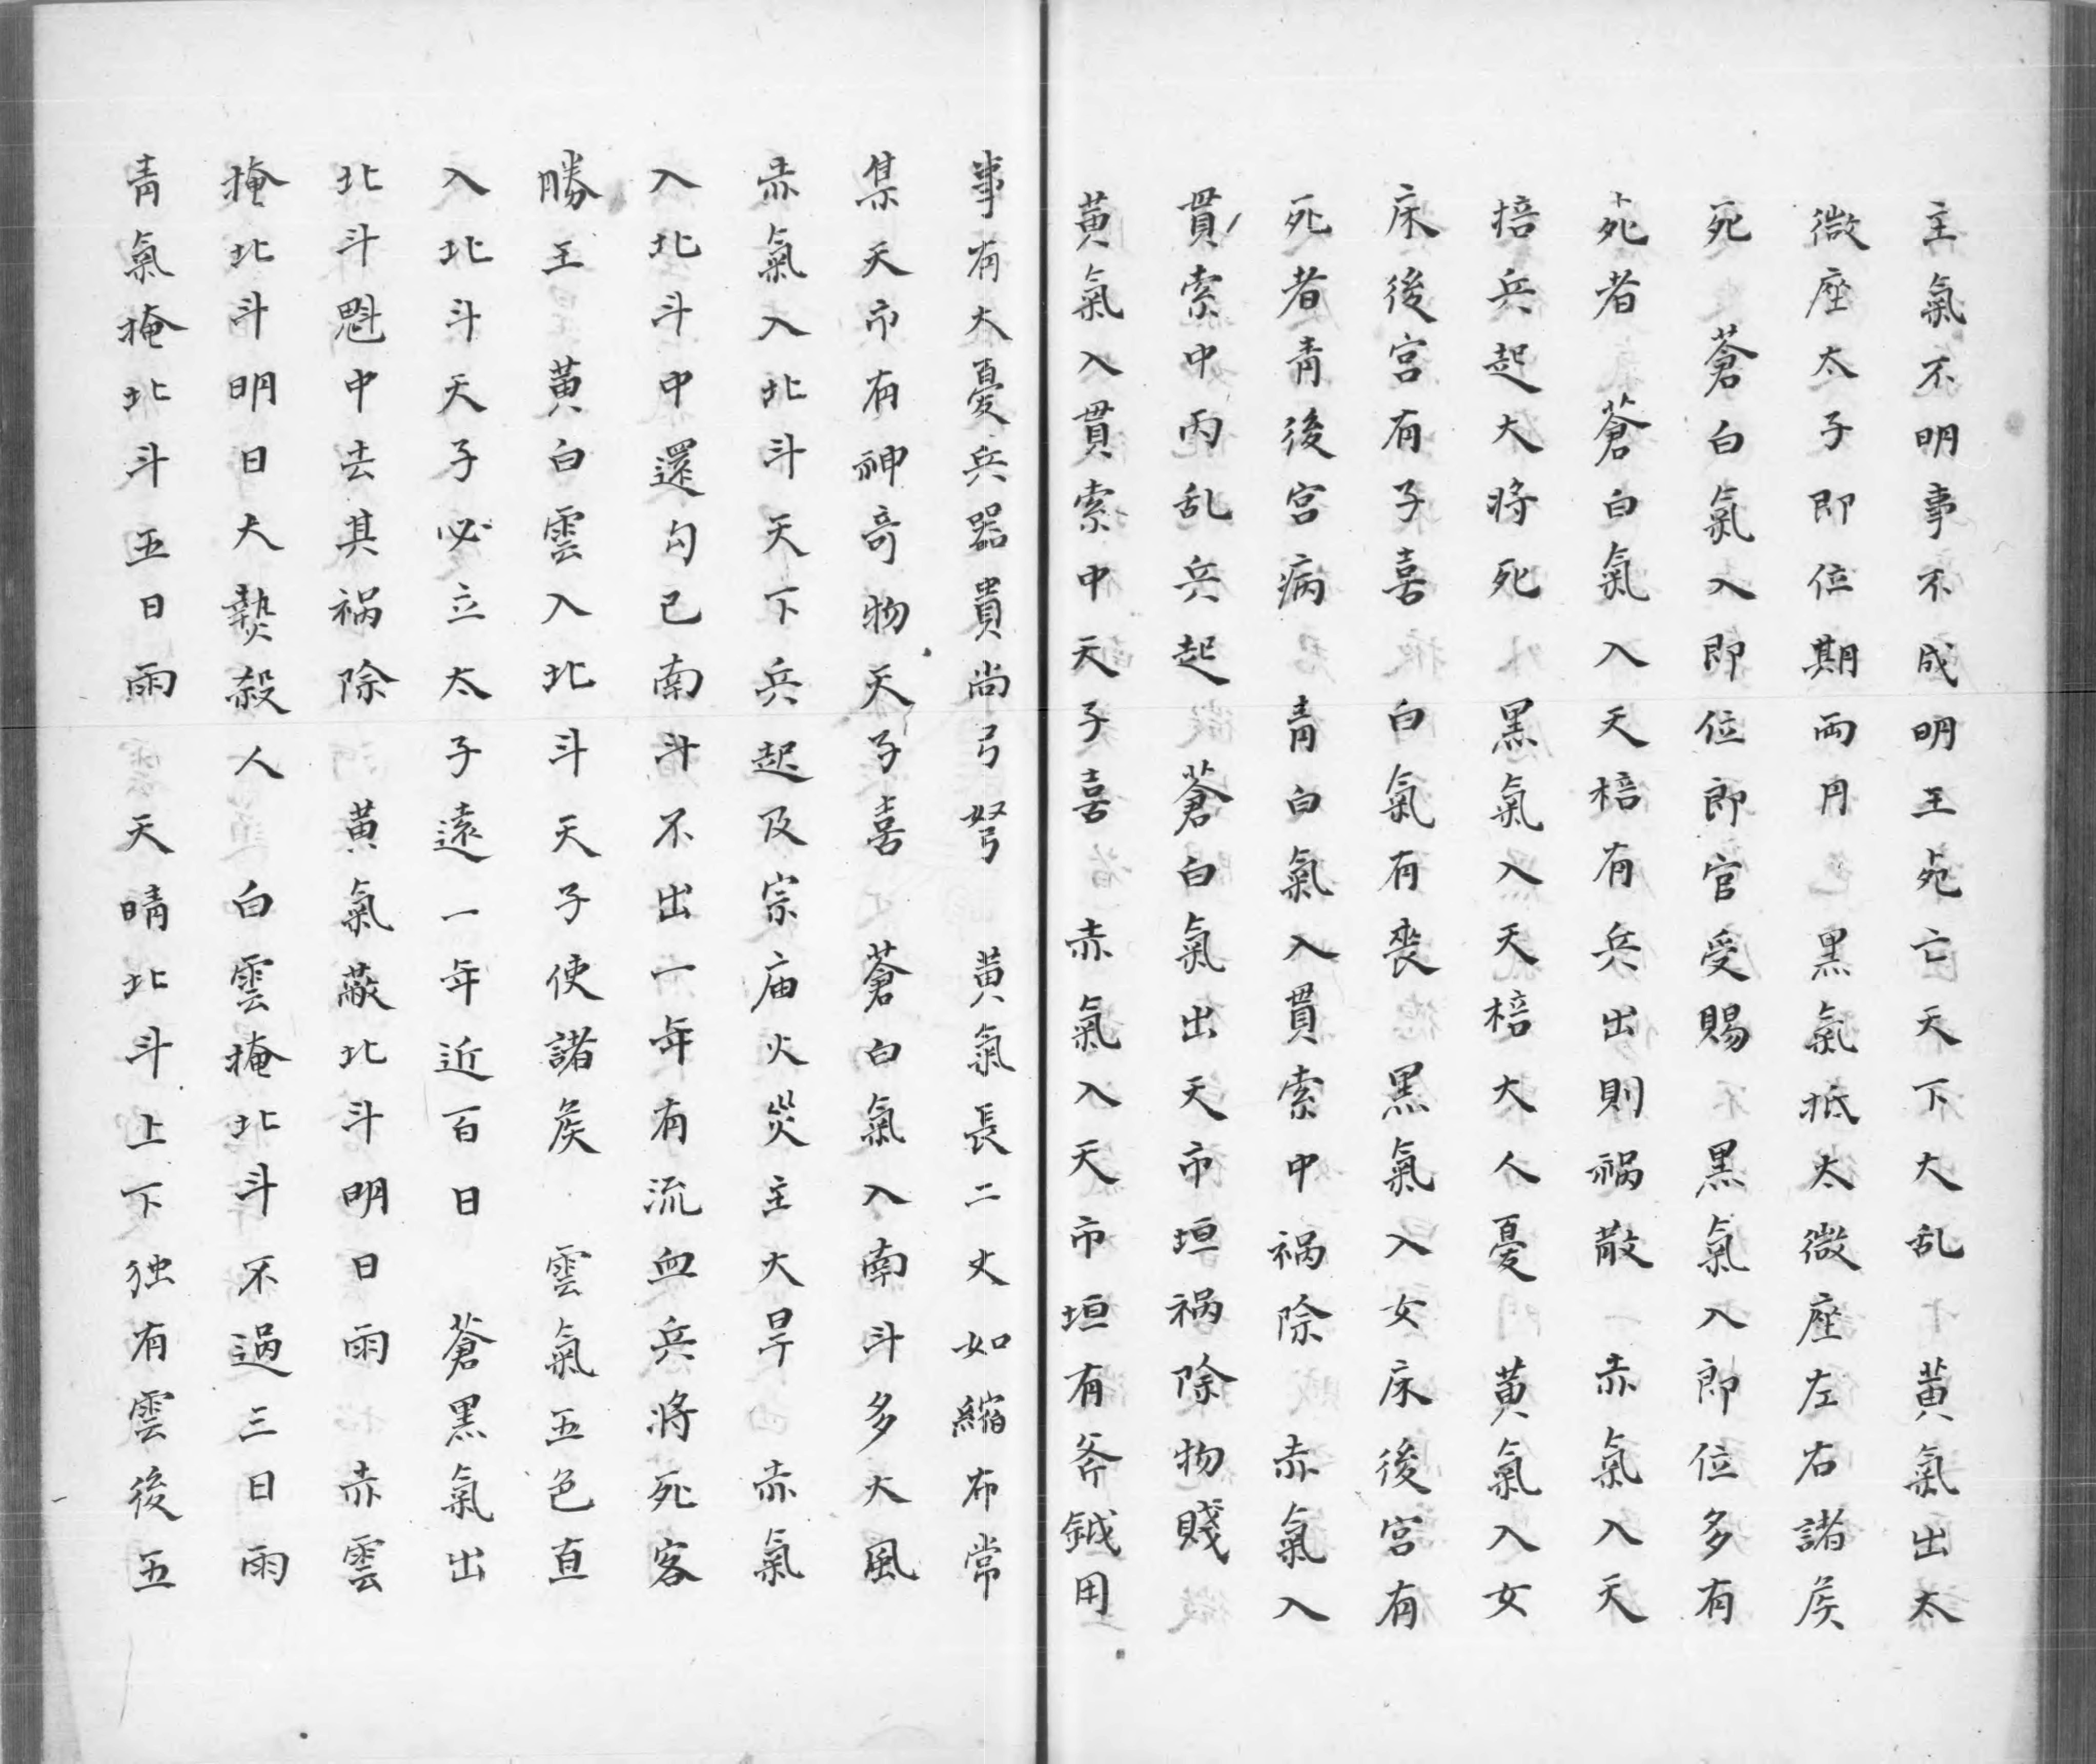 主氣不明事不成明王死亡天下大乱　黃氣出太
微座太子即位期兩月　黑氣抵太微座左右諸侯
死　蒼白氣入郎位郎官受賜　黑氣入郎位多有
死者　蒼白氣入天棓有兵出則禍散　赤氣入天
棓兵起大将死　黑氣入天棓大人憂　黃氣入女
床後宮有子喜　白氣有喪　黑氣入女床後宮有
死者青後宮病　青白氣入貫索中禍除　赤氣入
貫索中丙乱兵起　蒼白氣出天市垣禍除物賤
黃氣入貫索中天子喜　赤氣入天市垣有斧鉞用
事有大憂兵器貴尚弓弩　黃氣長二丈如縮布常
集天市有神奇物天子喜　蒼白氣入南斗多大風
赤氣入北斗天下兵起及宗庙火災主大旱　赤氣
入北斗中還勾己南斗不出一年有流血兵将死客
勝王　黃白雲入北斗天子使諸侯　雲氣五色直
入北斗天子必立太子遠一年近百日　蒼黑氣出
北斗魁中去其禍除　黃氣蔽北斗明日雨　赤雲
掩北斗明日大熱殺人　白雲掩北斗不過三日雨
青氣掩北斗五日雨　天晴北斗上下独有雲後五